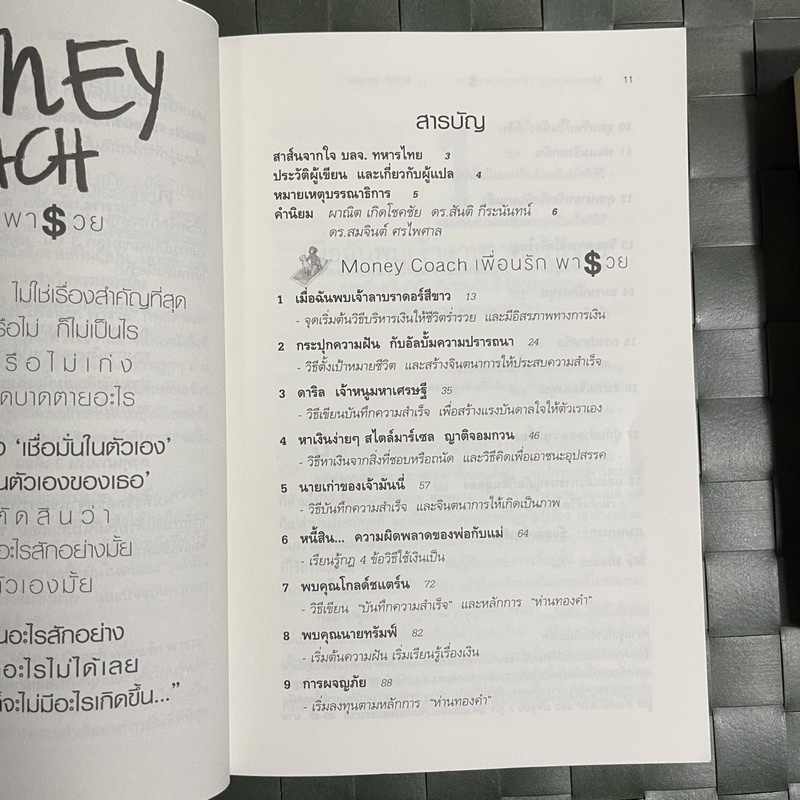 NEY
ACH
พา$วย
ไม่ใช่เรื่องสำคัญที่สุด
รือไม่ ก็ไม่เป็นไร
รือไม่เก่ง
ดบาดตายอะไร
'เชื่อมั่นในตัวเอง'
นตัวเองของเธอ'
ตัดสินว่า
อะไรสักอย่างมั้ย
ตัวเองมั้ย
นอะไรสักอย่าง
อะไรไม่ได้เลย
จะไม่มีอะไรเกิดขึ้น..."
11
สารบัญ
สาส์นจากใจ บลจ. ทหารไทย 3
ประวัติผู้เขียน และเกี่ยวกับผู้แปล 4
หมายเหตุบรรณาธิการ 5
คำนิยม ผาณิต เกิดโชคชัย ดร.สันติ กีระนันทน์ 6
ดร.สมจินต์ ศรไพศาล
Money Coach เพื่อนรัก พา$วย
1 เมื่อฉันพบเจ้าลาบราดอร์สีขาว 13
- จุดเริ่มต้นวิธีบริหารเงินให้ชีวิตร่ำรวย และมีอิสรภาพทางการเงิน
2 กระปุกความฝัน กับอัลบั้มความปรารถนา 24
- วิธีตั้งเป้าหมายชีวิต และสร้างจินตนาการให้ประสบความสำเร็จ
3 ดาริล เจ้าหนูมหาเศรษฐี 35
- วิธีเขียนบันทึกความสำเร็จ เพื่อสร้างแรงบันดาลใจให้ตัวเราเอง
4 หาเงินง่ายๆ สไตล์มาร์เซล ญาติจอมกวน 46
- วิธีหาเงินจากสิ่งที่ชอบหรือถนัด และวิธีคิดเพื่อเอาชนะอุปสรรค
5 นายเก่าของเจ้ามันนี่ 57
- วิธีบันทึกความสำเร็จ และจินตนาการให้เกิดเป็นภาพ
6 หนี้สิน... ความผิดพลาดของพ่อกับแม่ 64
- เรียนรู้กฎ 4 ข้อวิธีใช้เงินเป็น
7 พบคุณโกลด์ชแตร์น 72
- วิธีเขียน "บันทึกความสำเร็จ" และหลักการ "ห่านทองคำ"
8 พบคุณนายทรัมฟ์ 82
- เริ่มต้นความฝัน เริ่มเรียนรู้เรื่องเงิน
9 การผจญภัย 88
- เริ่มลงทุนตามหลักการ "ห่านทองคำ"